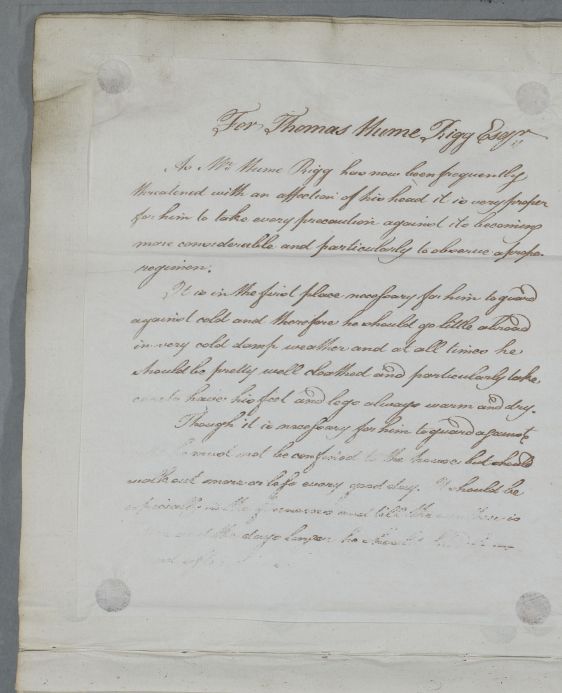 For Thomas Hume Rigg Esqr
As Mr Hume Rigg has now been frequently
threatened with an affection of his head it is very proper
for him to take every precaution against its becoming
more considerable and particularly to observe a proper
regimen.
It is in the first place necessary for him to guard
against cold and therefore he should go little abroad
in very cold damp weather and at all times he
should be pretty well cloathed and particularly take
care to have his feet and legs always warm and dry.
Though it is necessary for him to guard against
he must not be confined to the house but should
walk out more or less every good day. It should be
especially in the forenoons and till the weather is
and the days longer he should